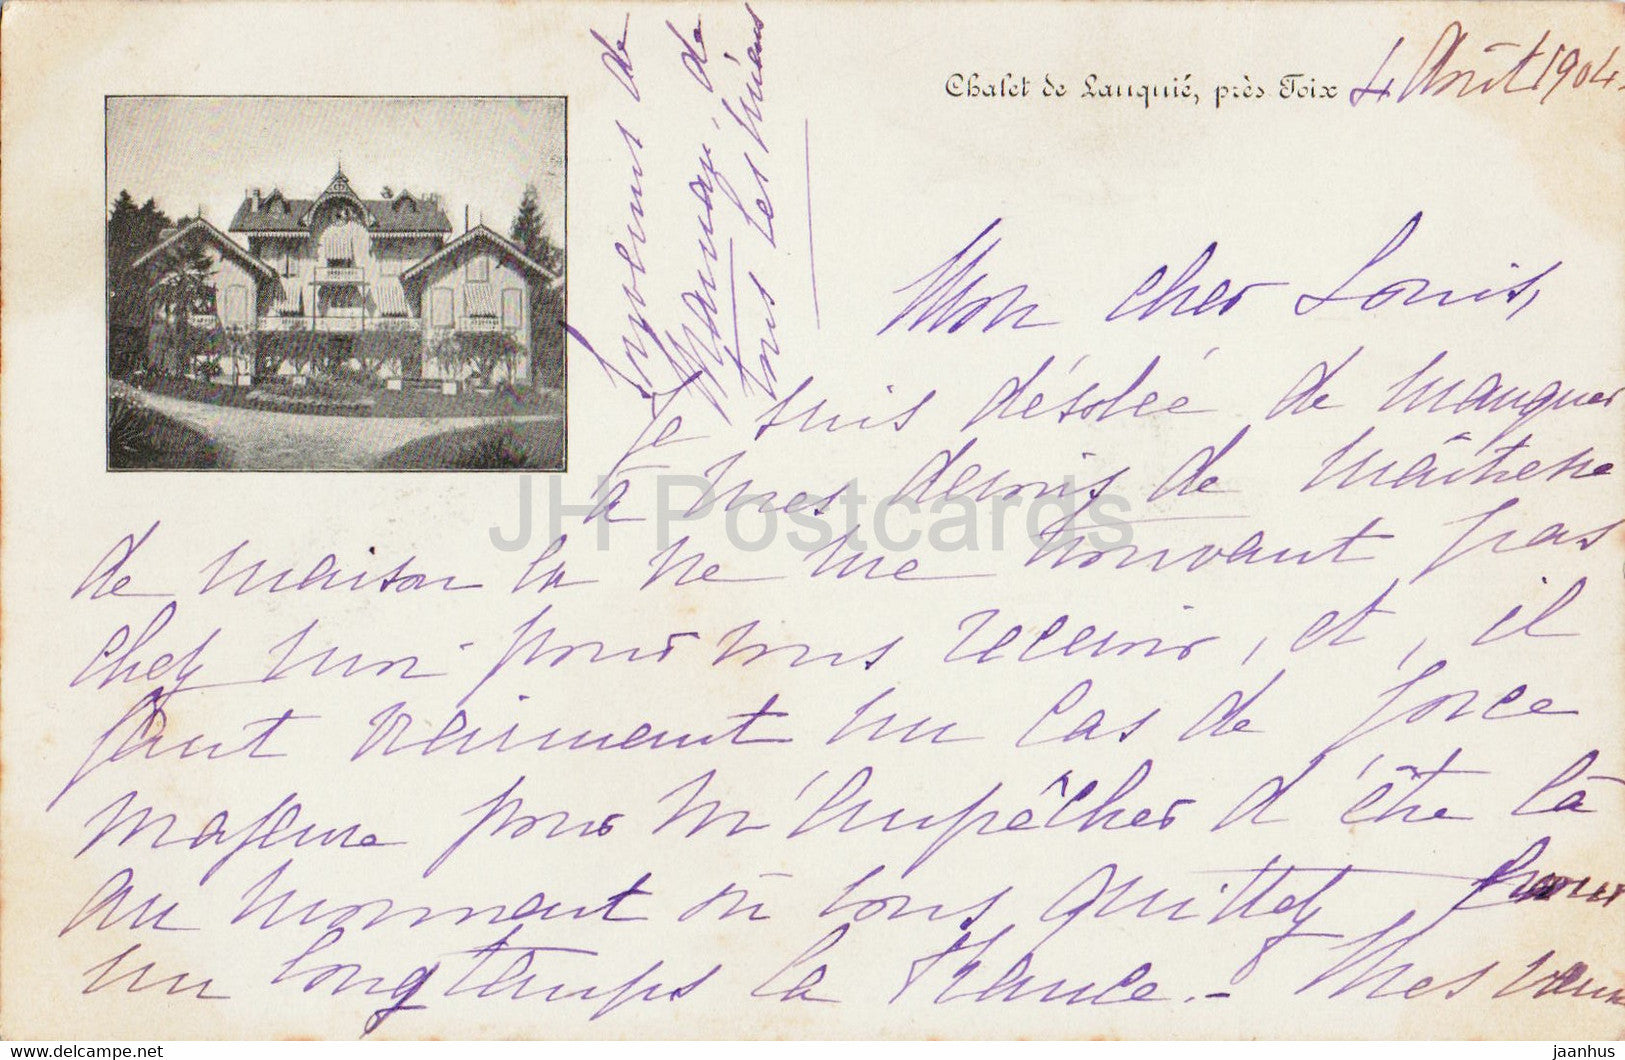 Chalet de Lauquié, près Foix
4 Août 1904.
Souvenirs de
Maman, de
tous les miens
Mon cher Louis,
Je suis désolée de manquer
à mes devoirs de maîtresse
de maison en ne me trouvant pas
chez moi pour vous recevoir, et, il
faut vraiment un cas de force
majeure pour m'empêcher d'être là
au moment où vous quittez pour
un longtemps la France. - Mes vœux
JH Postcards
www.delcampe.net
jaanhus